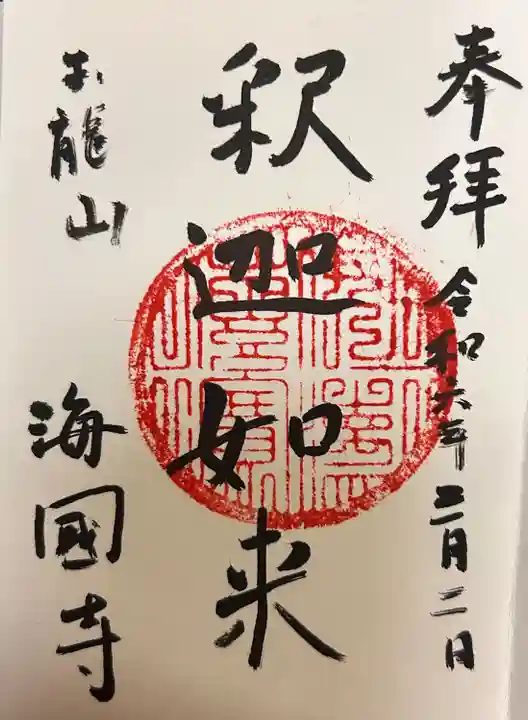 奉拝 令和六年三月二日
釈迦如来
龍山
海國寺